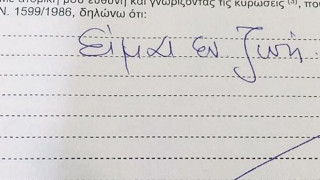 με ατομική μου ευθύνη και γνωρίζοντας τις κυρώσεις (3), που
Ν. 1599/1986, δηλώνω ότι:
Είμαι εν ζωή.